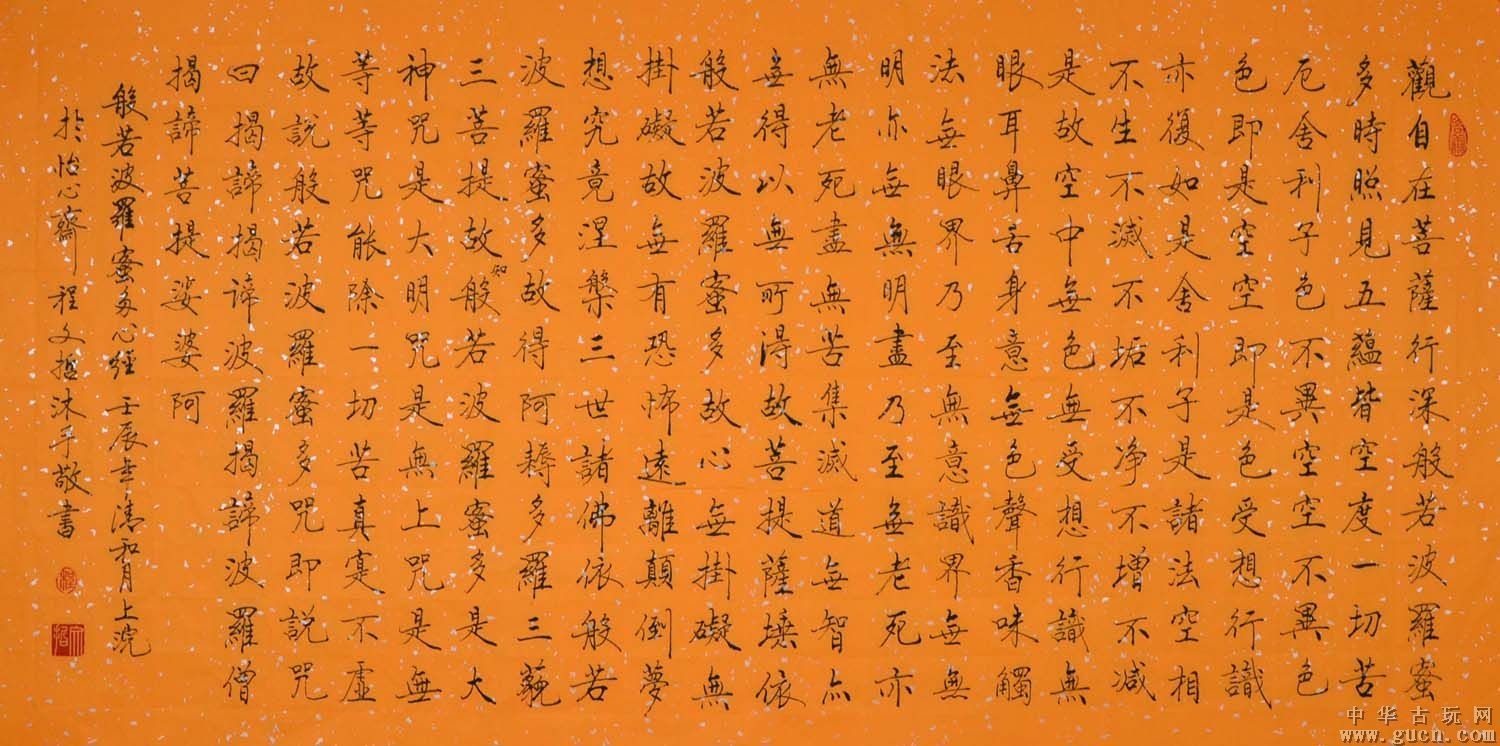 觀自在菩薩行深般若波羅蜜
多時照見五蘊皆空度一切苦
厄舍利子色不異空空不異色
色即是空空即是色受想行識
亦復如是舍利子是諸法空相
不生不滅不垢不净不增不减
是故空中無色無受想行識無
眼耳鼻舌身意無色聲香味觸
法無眼界乃至無意識界無無
明亦無無明盡乃至無老死亦
無老死盡無苦集滅道無智亦
無得以無所得故菩提薩埵依
般若波羅蜜多故心無掛礙無
掛礙故無有恐怖遠離顛倒夢
想究竟涅槃三世諸佛依般若
波羅蜜多故得阿耨多羅三藐
三菩提故知般若波羅蜜多是大
神咒是大明咒是無上咒是無
等等咒能除一切苦真寔不虛
故說般若波羅蜜多咒即說咒
曰揭諦揭諦波羅揭諦波羅僧
揭諦菩提娑婆阿
般若波羅蜜多心經 壬辰年清和月上浣
於怡心齋 程文哲沐手敬書
中华古玩网
www.gucn.com